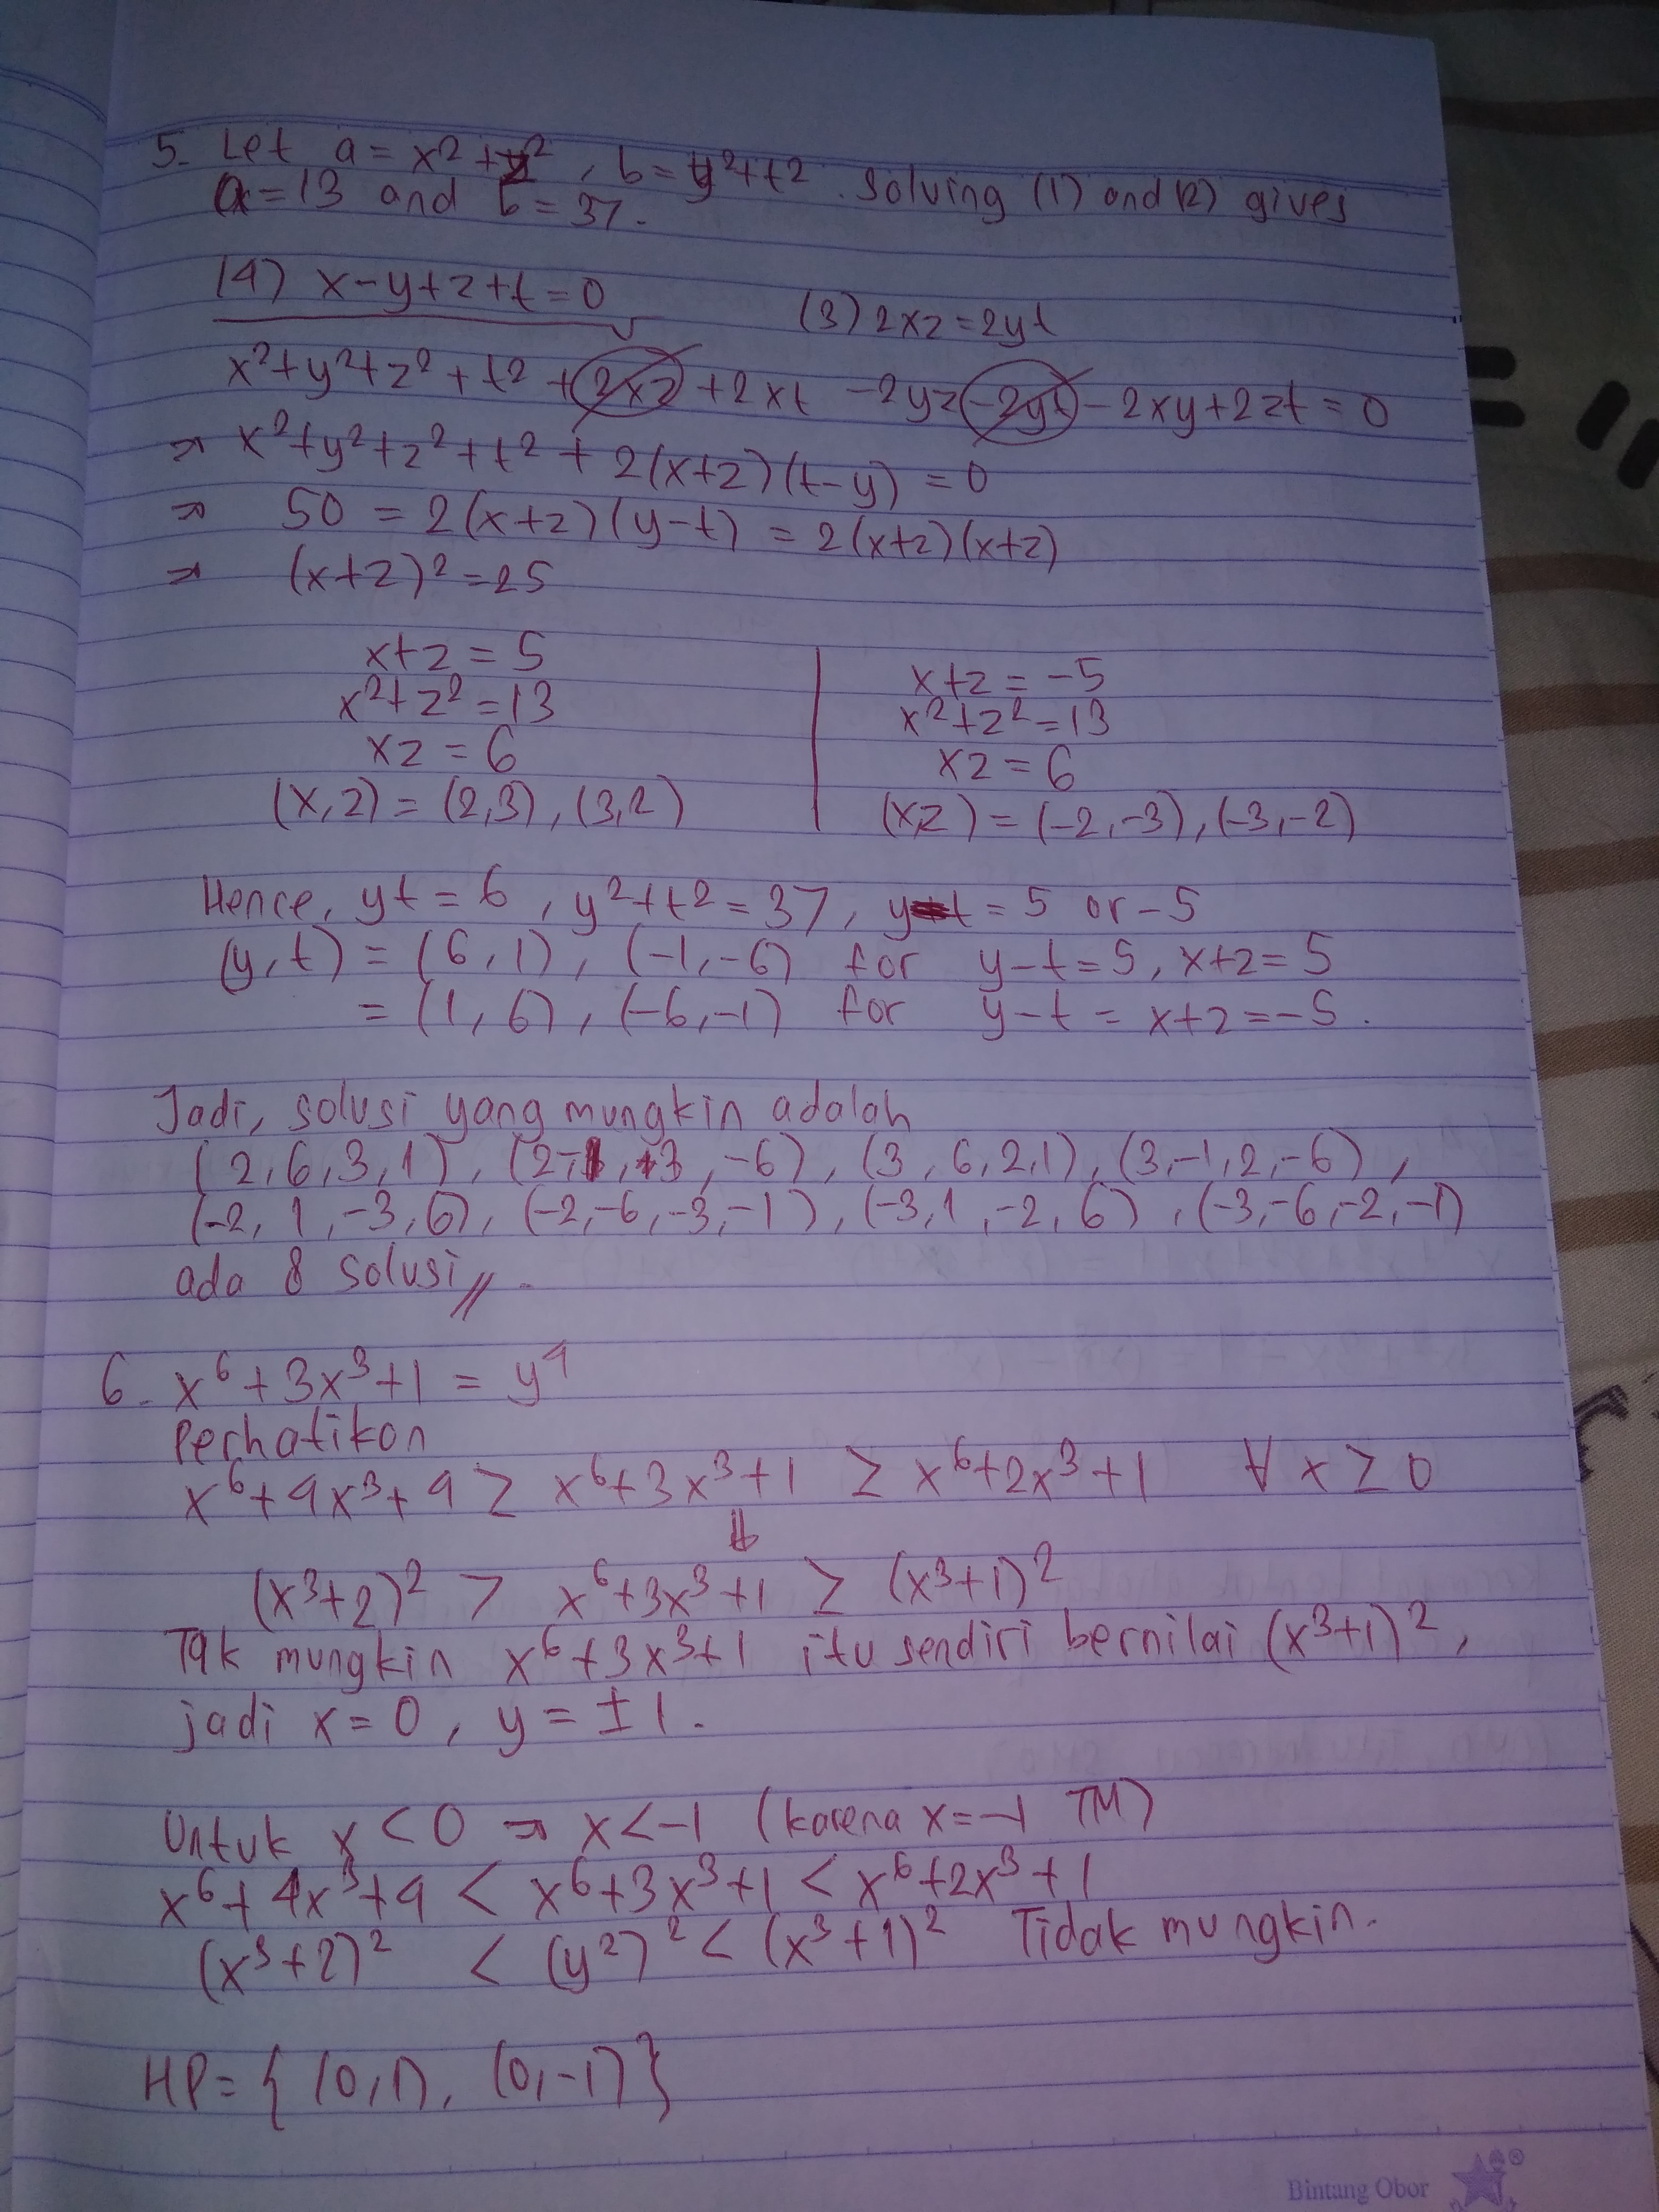 5. Let a = x² + z², b = y²+t². Solving (1) and (2) gives
a = 13 and b = 37.
(4) x-y+z+t=0
(3) 2xz = 2yt
x²+y²+z²+t²+2xz+2xt-2yz-2yt-2xy+2zt=0
⇒ x²+y²+z²+t²+2(x+z)(t-y) = 0
⇒ 50 = 2(x+z)(y-t) = 2(x+z)(x+z)
⇒ (x+z)²=25
x+z = 5
x²+z² = 13
xz = 6
(x,z) = (2,3), (3,2)
x+z = -5
x²+z² = 13
xz = 6
(x,z) = (-2,-3), (-3,-2)
Hence, yt = 6, y²+t² = 37, y-t = 5 or -5
(y,t) = (6,1), (-1,-6) for y-t=5, x+z=5
= (1,6), (-6,-1) for y-t = x+z = -5.
Jadi, solusi yang mungkin adalah
(2,6,3,1), (2,-1,+3,-6), (3,6,2,1), (3,-1,2,-6),
(-2,1,-3,6), (-2,-6,-3,-1), (-3,1,-2,6), (-3,-6,-2,-1)
ada 8 solusi //.
6. x⁶+3x³+1 = y⁴
Perhatikan
x⁶+4x³+4 ≥ x⁶+3x³+1 ≥ x⁶+2x³+1 ∀ x ≥ 0
⇓
(x³+2)² > x⁶+3x³+1 ≥ (x³+1)²
Tak mungkin x⁶+3x³+1 itu sendiri bernilai (x³+1)²,
jadi x=0, y=±1.
Untuk x<0 ⇒ x<-1 (karena x=-1 TM)
x⁶+4x³+4 < x⁶+3x³+1 < x⁶+2x³+1
(x³+2)² < (y²)² < (x³+1)² Tidak mungkin.
HP = {(0,1), (0,-1)}
Bintang Obor
®